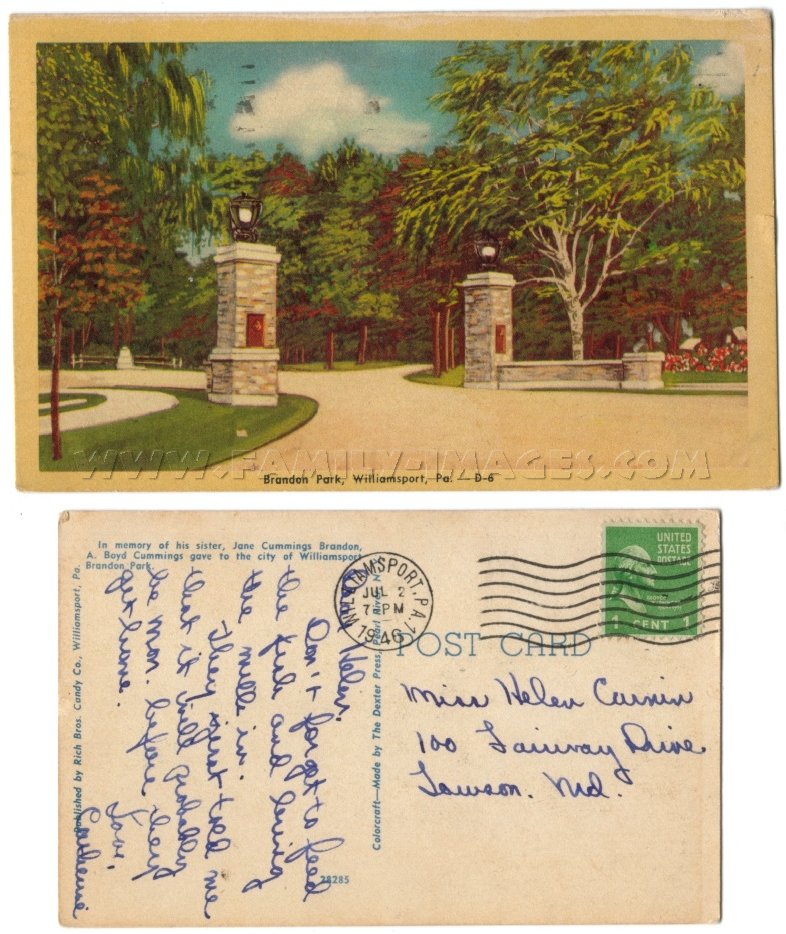 WWW.FAMILY-IMAGES.COM
Brandon Park, Williamsport, Pa. — D-6
In memory of his sister, Jane Cummings Brandon,
A. Boyd Cummings gave to the city of Williamsport
Brandon Park.
Published by Rich Bros. Candy Co., Williamsport, Pa.
Dear Helen,
Don't forget to feed
the fish and bring
the milk in.
They just told me
that it will probably
be mon. before they
get home.
Love,
Catherine
Colorcraft—Made by The Dexter Press, Pearl River, N.
28285
WILLIAMSPORT, PA. 1
JUL 2
7 PM
1946
UNITED
STATES
POSTAGE
1 CENT 1
POST CARD
Miss Helen
100 Fairway Drive
Towson. Md.